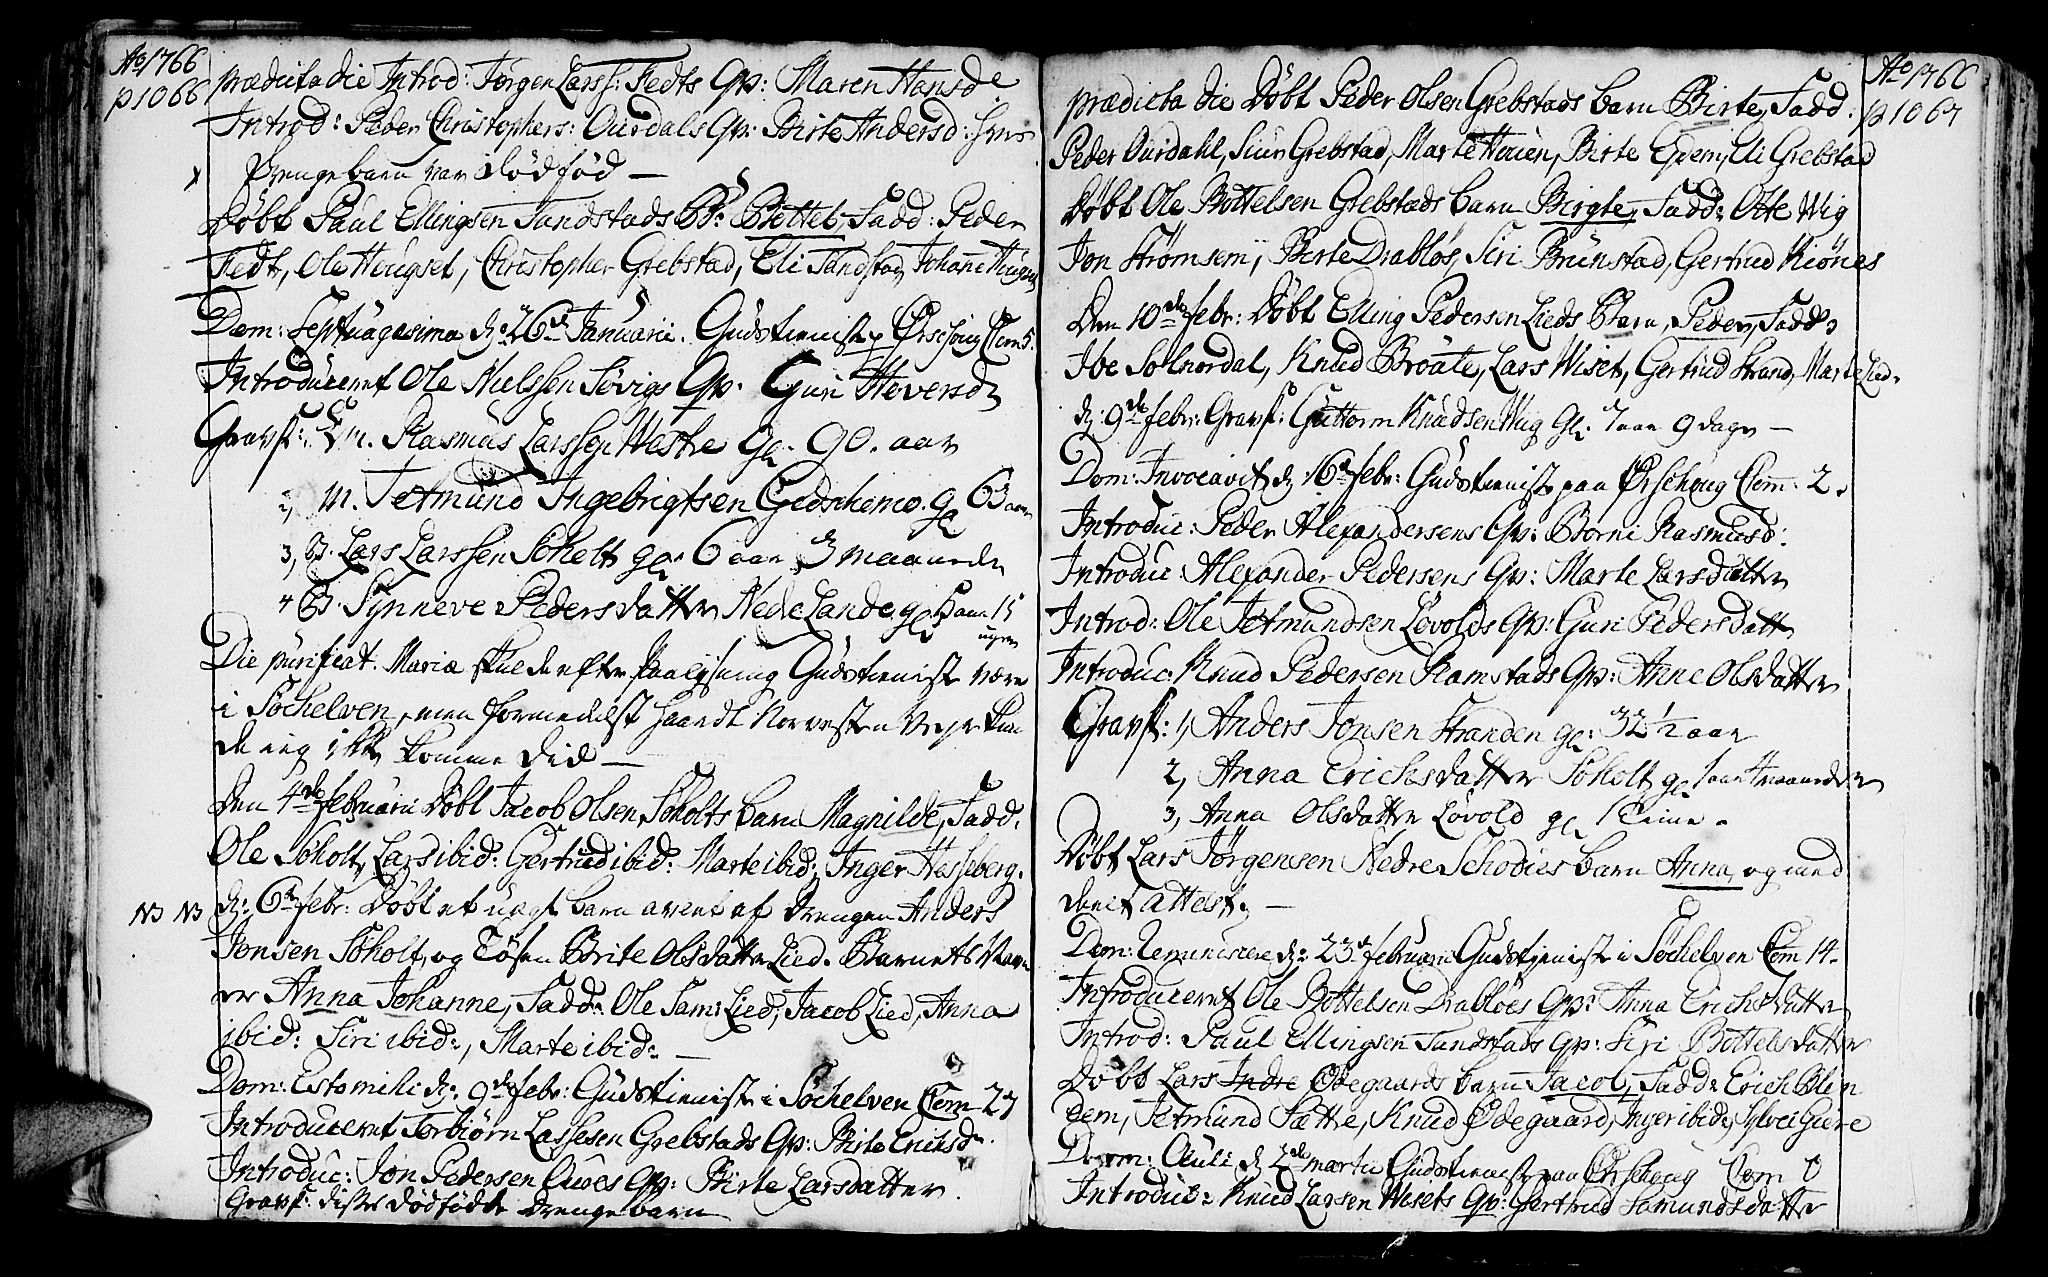 Ao 1766
p 1066
prædicta die Introd: Jørgen Larss: Fedts Qv: Maren Hansd
Introd: Peder Christophers: Ourdals Qv: Birte Andersd: hvis
Drengebarn var dødfød —
Døbt Paul Ellingsen Tandstads B: Bottel, Fadd: Peder
Fedt, Ole Hougset, Christopher Grebstad, Eli Tandstad, Johanne Hougset
Dom: Septuagesima d: 26de Januarii. Gudstieniste Ørschoug Com 5.
Introduceret Ole Nielssen Søvigs Qv. Guri Hoversd
Gravf: 1, M. Rasmus Larssen Westre gl. 90. aar
2, M. Jetmund Ingebrigtsen gl 63 aar
3, B. Lars Larssen Søholt gl. 6 aar 3 maaneder
4 B. Synneve Pedersdatter Nedre Lande gl 5 aar 15
uger
Die purificat. Mariæ skulde efter Paalysning Gudstieniste være
i Søchelven, men formedelst haardt Norvesten Veyr kun
de ieg ikke komme did —
Den 4de februarii Døbt Jacob Olsen Søholts barn Magnilde, Fadd:
Ole Søholt, Lars ibid: Gertrud ibid: Marte ibid: Inger Hesseberg.
NB NB d: 6te febr: Døbt et uægt barn avlet af Drengen Anders
Jonsen Søholt, og Tøsen Brite Olsdatter Lied. Barnets Navn
er Anna Johanne, Fadd: Ole Sam: Lied, Jacob Lied, Anna
ibid: Siri ibid:, Marte ibid: —
Dom: Estomihi d: 9de febr: Gudstieniste i Søchelven Com 27
Introduceret Torbiørn Lassesen Grebstads Qv: Birte Ericksd.
Introduc: Jon Pedersen Auves Qv: Birte Larsdatter.
Gravf: dises dødfødte Drengebarn
Ao 1766
p 1067
prædicta die Døbt Peder Olsen Grebstads barn Birte, Fadd:
Peder Ourdahl, Siur Grebstad, Marte Houen, Birte Eqem, Eli Grebstad
Døbt Ole Bottelsen Grebstads barn Birgte, Fadd: Otte Wig
Jon Strømsem, Birte Drabløs, Siri Brunstad, Gertrud Kiønes
Den 10de febr: Døbt Elling Pedersen Lieds Barn, Peder, Fadd:
Ibe Solnordal, Knud Broate, Lars Wiset, Gertrud Strand, Marte Lied.
d: 9de febr: Gravf: Guttorm Knudsen Wig gl. 7 aar 9 dage —
Dom: Invocavit d: 16de febr: Gudstieniste paa Ørschoug Com: 2.
Introduc: Peder Alexandersens Qv: Borni Rasmusd:
Introduc: Alexander Pedersens Qv: Marte Larsdatter
Introd: Ole Jetmundsen Løvolds Qv: Guri Pedersdatter
Introduc: Knud Pedersen Ramstads Qv: Anne Olsdatter
Gravf: 1, Anders Jonsen Stranden gl: 32 1/2 aar
2, Anna Erichsdatter Søholt gl 1 aar 4 maaneder
3, Anna Olsdatter Løvold gl 1 Time.
Døbt Lars Jørgensen Nedre Schodies barn Anna, og med
deelt attest. —
Dom: Reminiscere d: 23de februarii Gudstieniste i Søchelven Com 14.
Introduceret Ole Bottelsen Drabløes Qv: Anna Erichsdatter
Introd: Paul Ellingsen Tandstads Qv: Siri Bottelsdatter
Døbt Lars Indre Ødegaards barn Jacob, Fadd: Erich Blin
dem, Jetmund Sætte, Knud Ødegaard, Inger ibid:, Sylvei Giere
Dom: Oculi d 2de martii Gudstieniste paa Ørschoug Com 0
Introduc: Knud Larsen Wisets Qv: Gertrud Samundsdatter